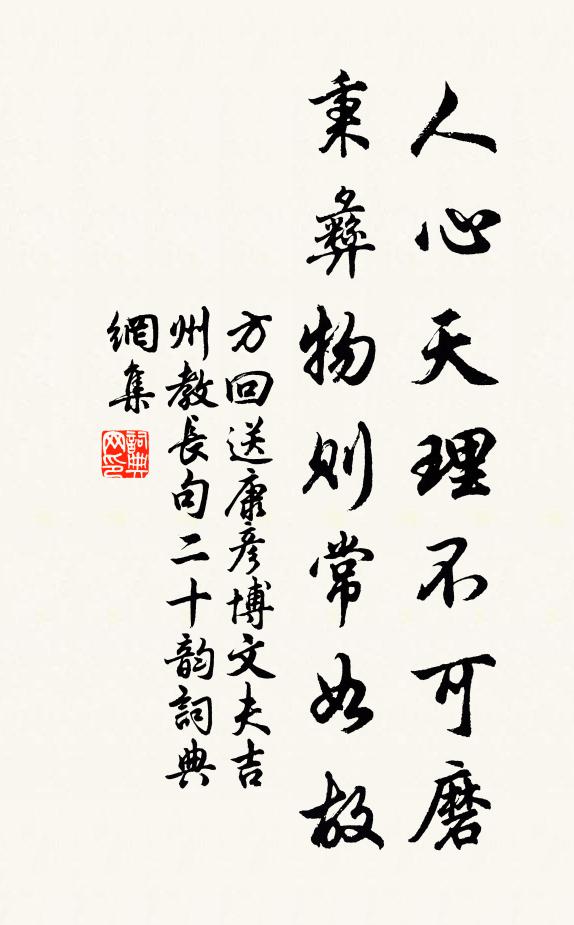 人心天理不可磨
秉彝物則常如故
方回送康彦博文夫吉
州教長句二十韵詞典
網集
詞典网印